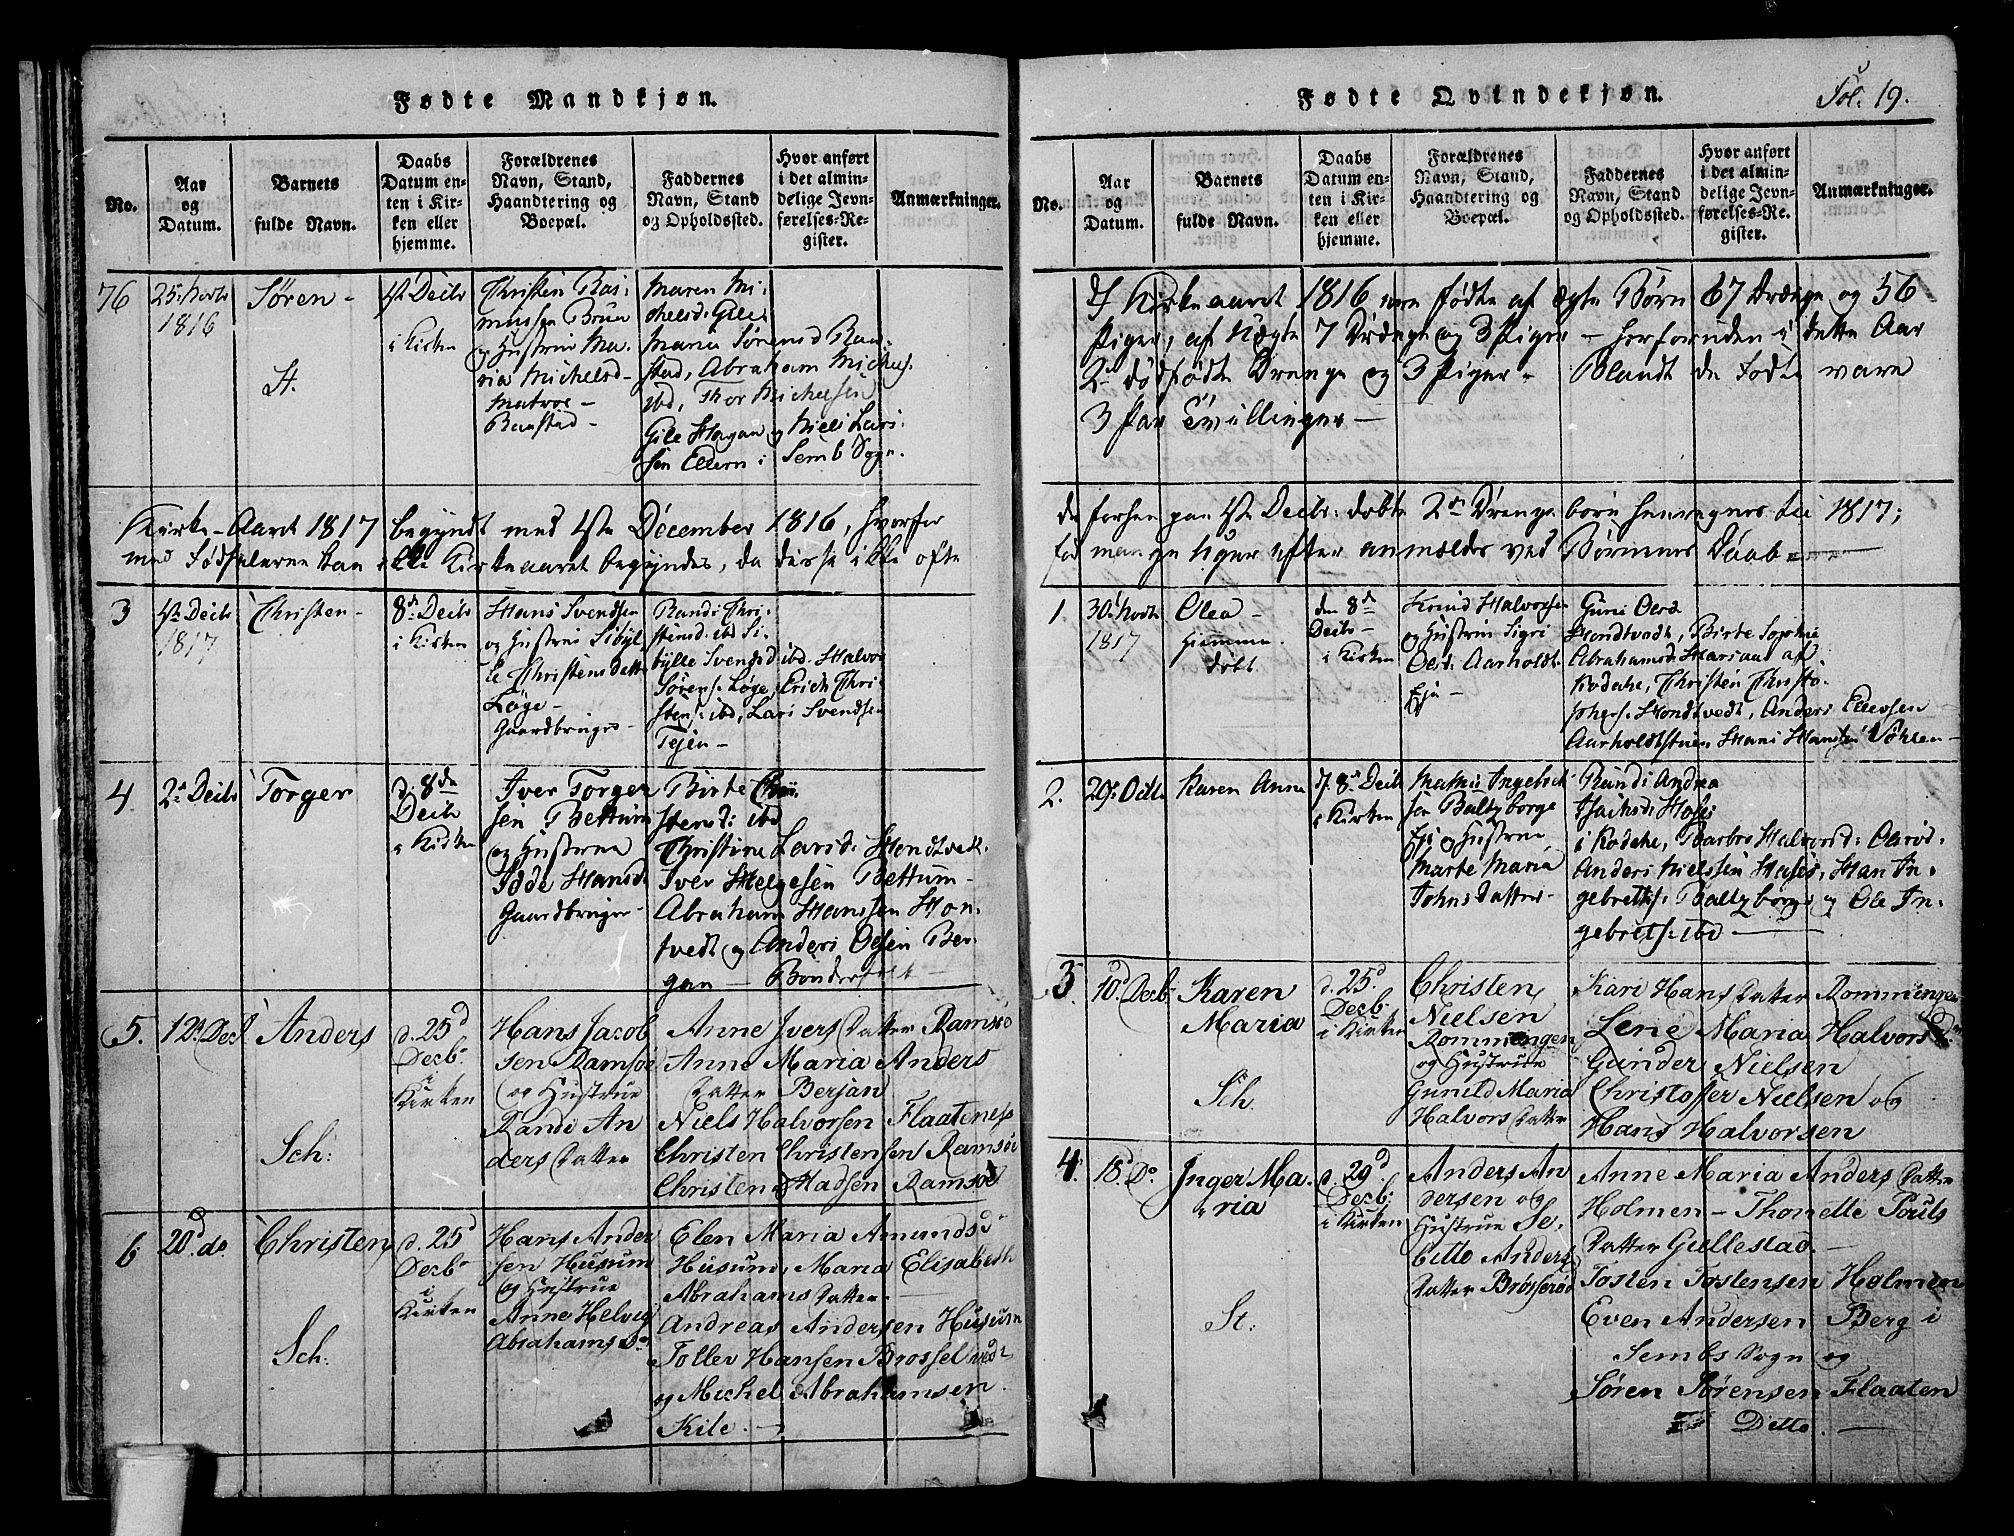 Fødte Mandkjøn.
No.
Aar
og
Datum.
Barnets
fulde Navn.
Daabs
Datum en-
ten i Kir-
ken eller
hjemme.
Forældrenes
Navn, Stand,
Haandtering og
Boepæl.
Faddernes
Navn, Stand
og Opholdssted.
Hvor anført
i det almin-
delige Jevn-
førelses-Re-
gister.
Anmærkninger.
76
25 Novb
1816
Søren -
St.
1ste Decbr
i Kirken
Christen Ras-
mussen Bruu
og Hustrue Ma-
ria Michelsd
Matros -
Baustad -
Maren Mi-
chelsd: Gile
Maria Sørensd Bau-
stad, Abraham Michels.
ibd, Thor Michelsen
Gile Hagan og Niels Lar-
sen Ellern i Semb Sogn.
Kirke-Aaret 1817 begyndt med 1ste December 1816, hvorfor
med Fødselerne kan ikke Kirkeaaret begyndes, da disse ikke ofte
3
1ste Decbr
1817
Christen -
8de Decbr
i Kirken
Hans Svendsen
og Hustrue Sibyl-
le Christensdatter
Løge -
Gaardbruger -
Randi Chri-
stensd: ibd Si-
bylle Svensd ibd. Halvor
Sørens. Løge, Erich Chri-
stens: ibd, Lars Svendsen
Tejen -
4
2de Decbr
Torger
d. 8de
Decbr
i Kirken
Iver Torger
sen Bettum
og Hustrue
Idde Hansd
Gaardbruger -
Birte Chri-
stensd: ibd
Christine Larsd: Hondtvedt.
Iver Helgesen Bettum -
Abraham Hanssen Hon-
tvedt og Anders Olsen Ber-
gan - Bønderfolk -
5.
12te Decb
Anders
Sch:
d. 25d
Decbr
i
Kirken
Hans Jacob
sen Ramsøe
og Hustrue
Randi An
ders Datter
Anne Ivers Datter Ramsøe
Anne Maria Anders
Datter Berjan
Niels Halvorsen Flaatenes
Christen Christensen Ramsøe
Christen Madsen Ramsøe
6
20d do
Christen
Sch:
d. 25d
Decbr
i
Kirken
Hans Ander
sen Husum
og Hustrue
Anne Helvig
Abrahamsd
Elen Maria Amundsd
Husum, Maria Elisabeth
Abrahams Datter
Andreas Andersen Husum
Tollev Hansen Brossel
og Michel Abrahamsen
Kile. -
Fødte Qvindekjøn.
Fol. 19.
No.
Aar
og
Datum.
Barnets
fulde Navn.
Daabs
Datum en-
ten i Kir-
ken eller
hjemme.
Forældrenes
Navn, Stand,
Haandtering og
Boepæl.
Faddernes
Navn, Stand
og Opholdssted.
Hvor anført
i det almin-
delige Jevn-
førelses-Re-
gister.
Anmærkninger.
I Kirkeaaret 1816 ere fødte af ægte Børn 67 Drænge og 56
Piger, af Uægte 7 Drænge og 3 Piger - herforuden i dette Aar
2de dødfødte Drenge og 3 Piger - Blandt de fødte vare
3 Par Tvillinger -
da forhen paa 1ste Decbr: døbte 2de Drenge børn henregnes til 1817;
før mange Uger efter anmældes ved Børnenes Daab
1.
30te Novbr
1817
Olea -
Hiemme
døbt
den 8de
Decbr -
i Kirken
Knud Halvorsen
og Hustrue Sigri
Olsd: Aarholdt
Eje -
Guri Olsd
Hondtvedt, Birte Sophie
Abrahamsd: af
Kodahl, Christen Christo-
phers. Hondtvedt, Anders Ellevsen
Aarholdtstuen Hans Hansen
2.
29de Octb
Karen Anne
d. 8de Decbr
i Kirken
Mathis Ingebret-
sen Baltzborge
Eje og Hustrue
Marte Maria
Johnsdatter -
Randi Andrea
Isachsd: Hasås
i Kodahl, Barbro Halvorsd: Olsrød.
Anders Nielssen Hasås, Hans In-
gebrets: Baltzborge og Ole In-
gebrets: ibd -
3.
10d Decb
Karen
Maria
Sch.
d. 25d
Decbr
i Kirken
Christen
Nielsen
Rommingen
og Hustrue
Gunild Maria
Halvors Datter
Kari Hans Datter Rommingen
Lene Maria Halvors
Gunder Nielsen
Christoffer Nielsen og
Hans Halvorsen
4.
18d Do
Inger Ma-
ria
St:
d. 29d
Decb:
i Kirken
Anders An
dersen og
Hustrue Se-
Citte Anders
Datter Brøsserød
Anne Maria Anders Datter
Holmen - Thonette Pouls
Datter Gullestad. -
Tosten Tostensen Holmen
Even Andersen Berg i
Sembs Sogn og
Søren Sørensen Flaaten
Ditto. -